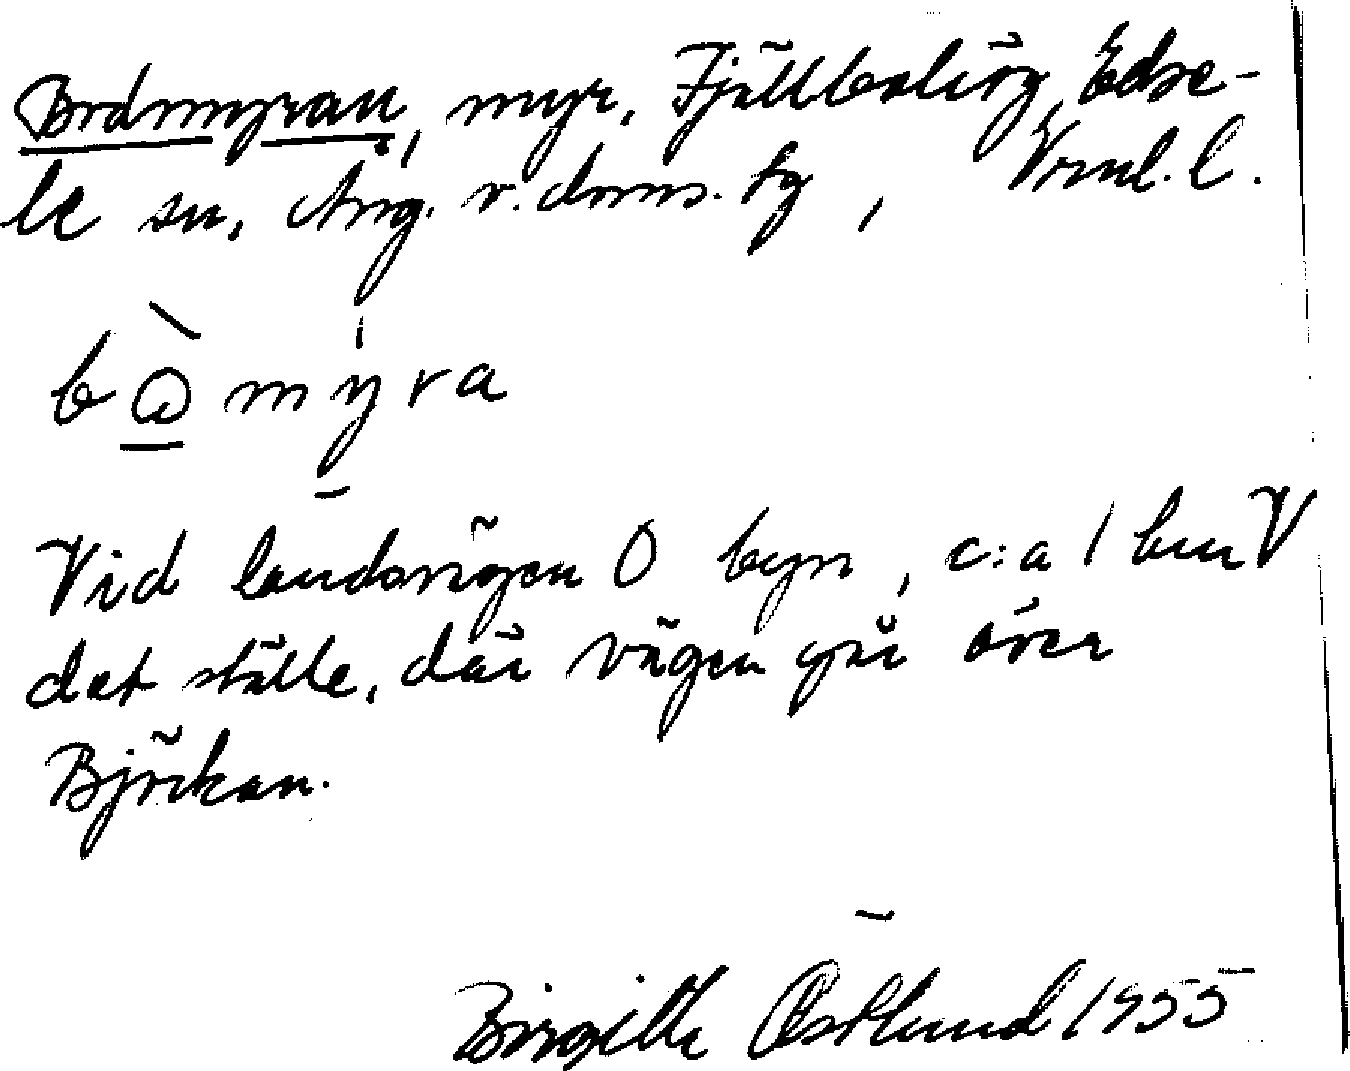 Bodmyran, myr, Fjällboliög, Edse-
le sn, Ång. v. doms. fg, Vrnl. l.
bòmyra
Vid landsvägen O byn, c:a 1 km V
det ställe, där vägen går över
Björkan.
Birgitta Östlund 1955